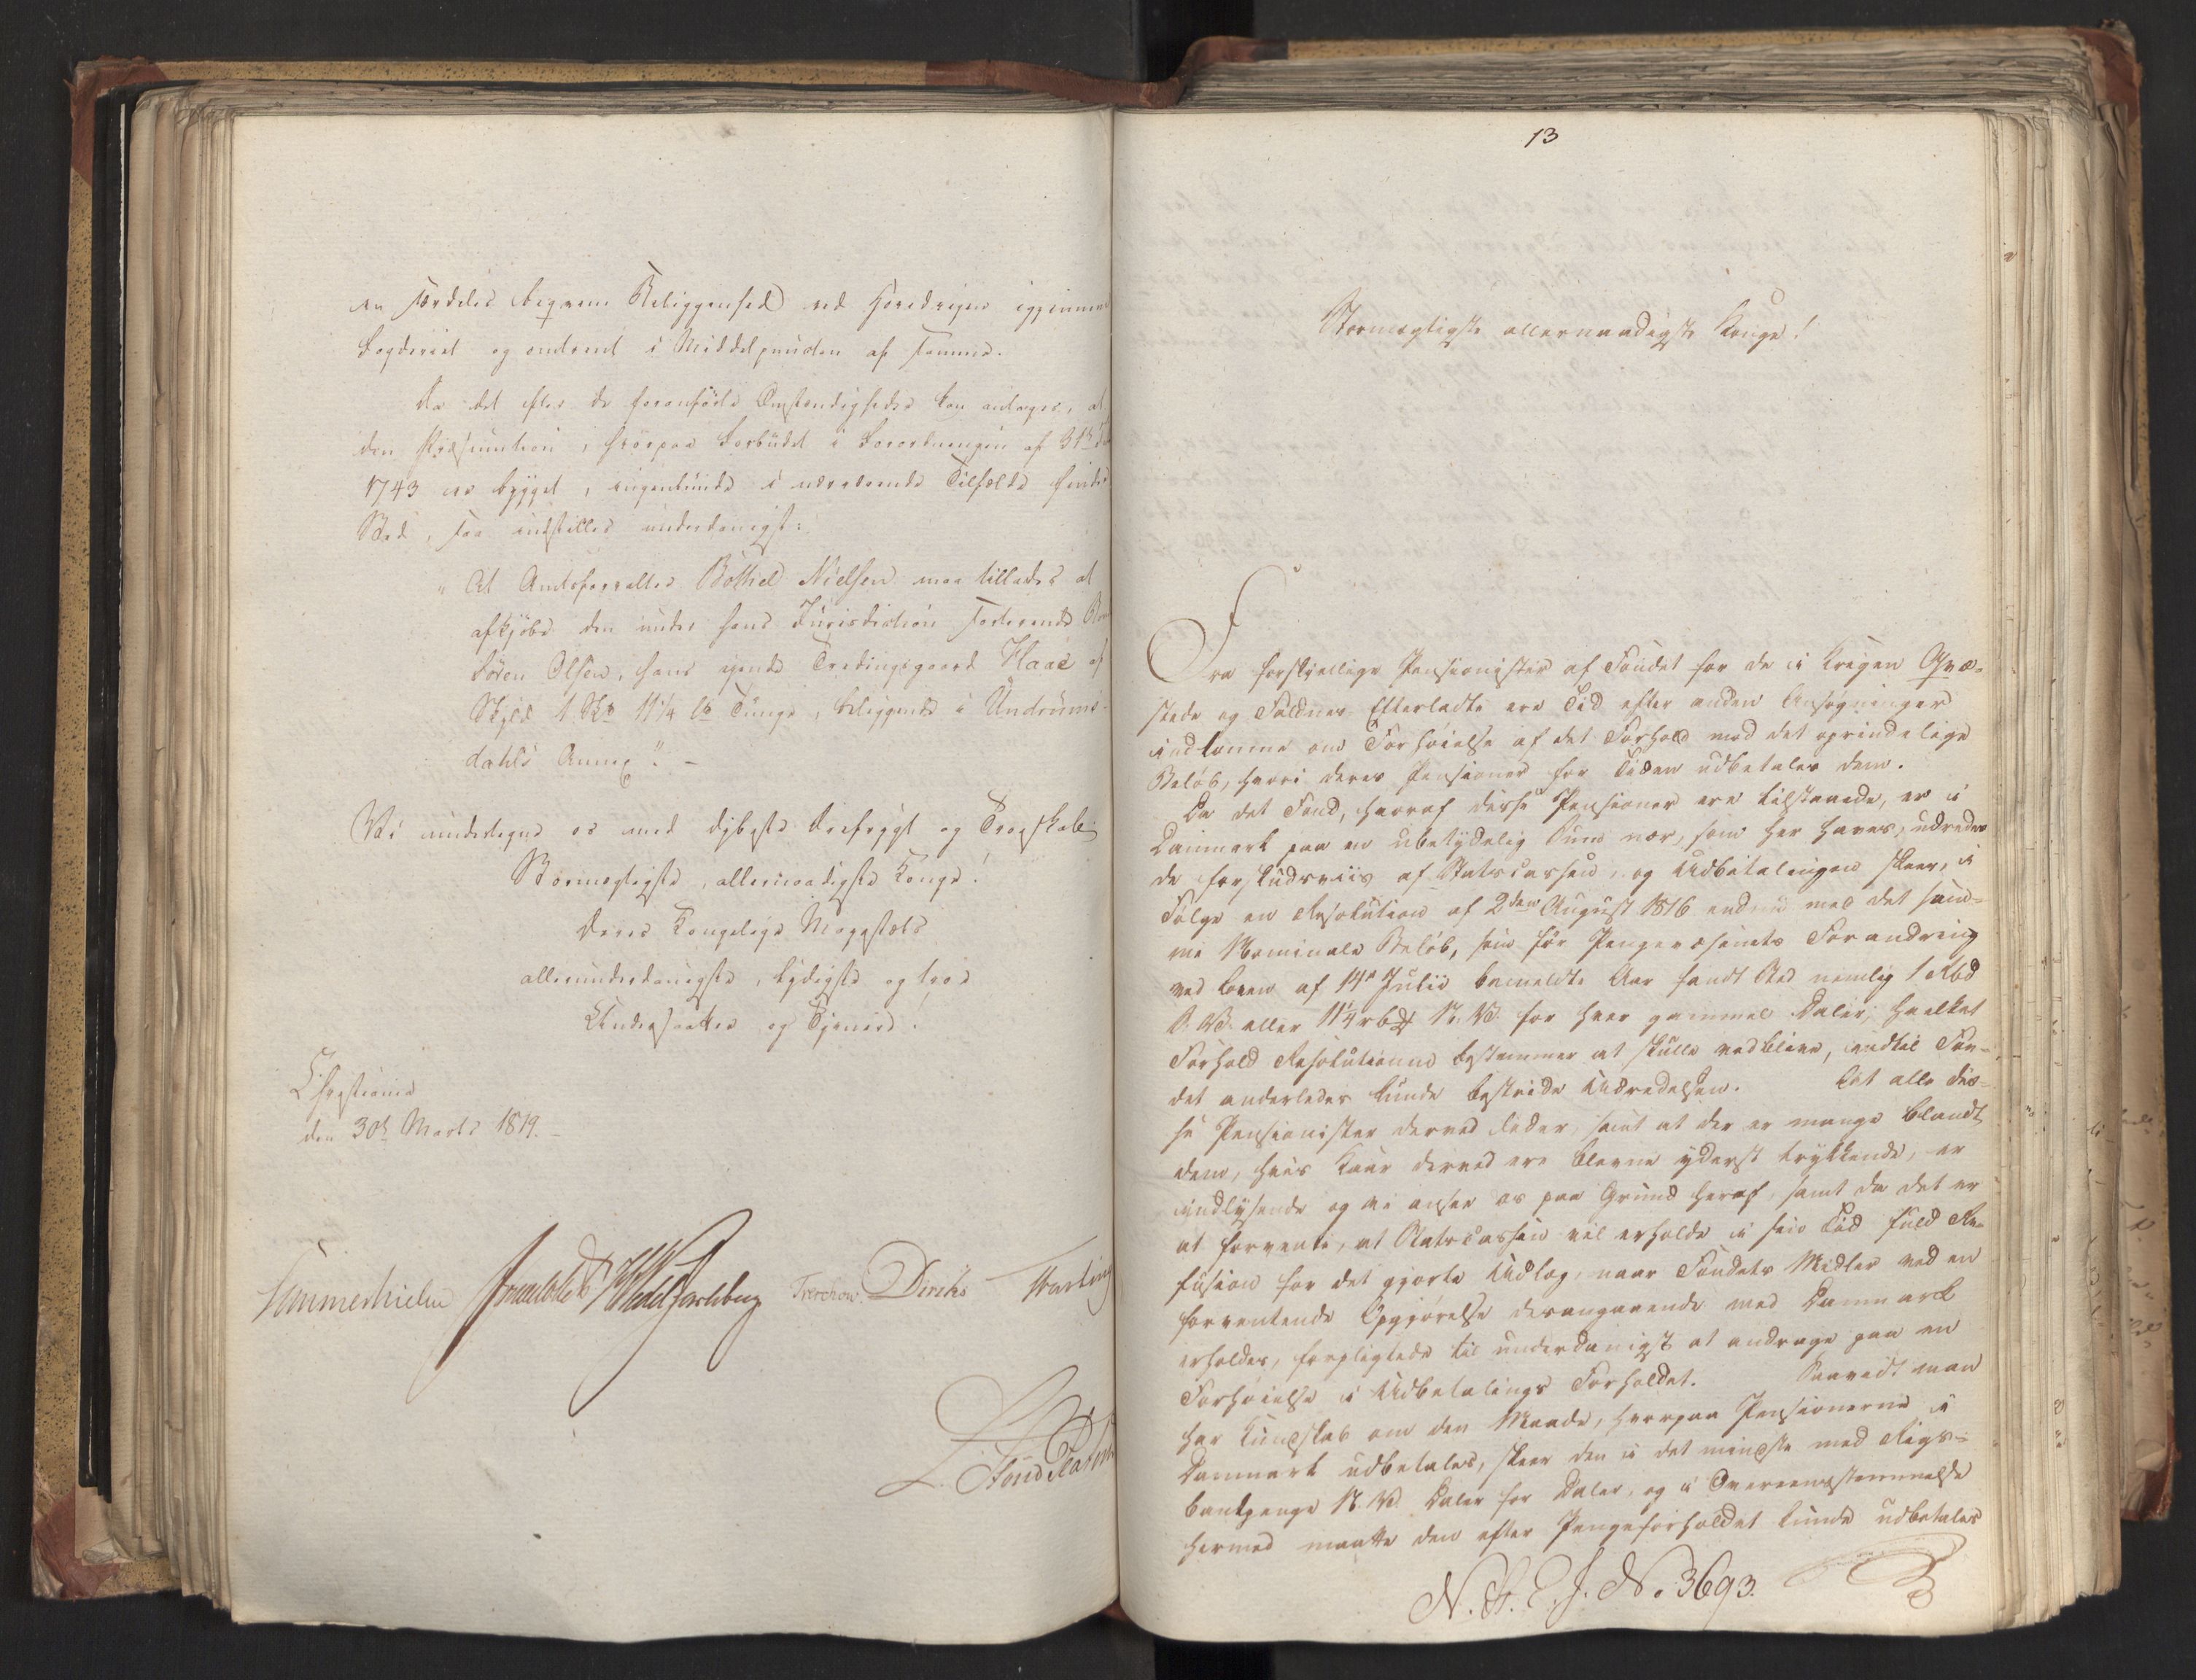 en særdeles beqvem Beliggenhed ved Hovedveyen igjennem
Fogderiet og omtrent i Middelpuncten af samme.
Da det efter de foranførte Omstændigheder kan antages, at
den Præsumtion, hvorpaa Forbudet i Forordningen af 31te
1743 er bygget, ingenlunde i nærværende Tilfælde finder
Sted, saa indstilles underdanigst:
" At Amtsforvalter Bothel Nielsen maa tillades at
afkjøbe den under hans Jurisdiction sorterende
Søren Olsen, hans ejende Tredingsgaard Haae af
Skyld 1 Skp 11 1/4 lb Tunge, beliggende i Undrums-
dahls Annex". -
Vi undertegne os med dybeste Ærefrygt og Troeskab
Stormægtigste, allernaadigste Konge!
Deres Kongelige Mayestæts
allerunderdanigste, lydigste og troe
Undersaatter og Tjenere.
Christiania
den 30te Marts 1819.-
Sommerhielm HWedel Jarlsberg Treschow Diriks
13
Stormægtigste allernaadigste Konge!
Fra forskjellige Pensionister af Fondet for de i Krigen Qvæ-
stede og Faldnes Efterladte ere Tid efter anden Ansøgninger
indkomne om Forhøielse af det Forhold med det oprindelige
Beløb, hvori deres Pensioner for Tiden udbetales dem.
Da det Fond, hvoraf disse Pensioner ere tilstaaede, er i
Danmark paa en ubetydelig Sum nær, som her haves, udredes
de forskudsviis af Statscassen, og Udbetalingen skeer, i
Følge en Resolution af 2den August 1816 endnu med det sam-
me Nominale Beløb, som før Pengevæsenets Forandring
ved Loven af 14de Junii bemeldte Aar fandt Sted nemlig 1 Rbd
S. V. eller 11 1/4 rbß N. V. for hver gammel Daler, hvilket
Forhold Resolutionen bestemmer at skulle vedblive, indtil Fon-
det anderledes kunde bestride Udredelsen. At alle dis-
se Pensionister derved lider, samt at der er mange blandt
dem, hvis Kaar derved ere blevne yderst trykkende, er
indlysende og vi anser os paa Grund heraf, samt da det er
at forvente, at Statscassen vil erholde i sin Tid fuld Re-
fusion for det gjorte Udlæg, naar Fondets Midler ved en
forventende Opgjørelse desangaaende med Danmark
erholdes, forpligtede til underdanigst at andrage paa en
Forhøielse i Udbetalings Forholdet. Saavidt man
har Kundskab om den Maade, hvorpaa Pensionerne i
Danmark udbetales, skeer den i det mindste med Rigs-
bankpenge N. V. Daler for Daler, og i Overeensstemmelse
hermed maatte den efter Pengeforholdet kunde udbetales
N. H. E. J. No. 3693.